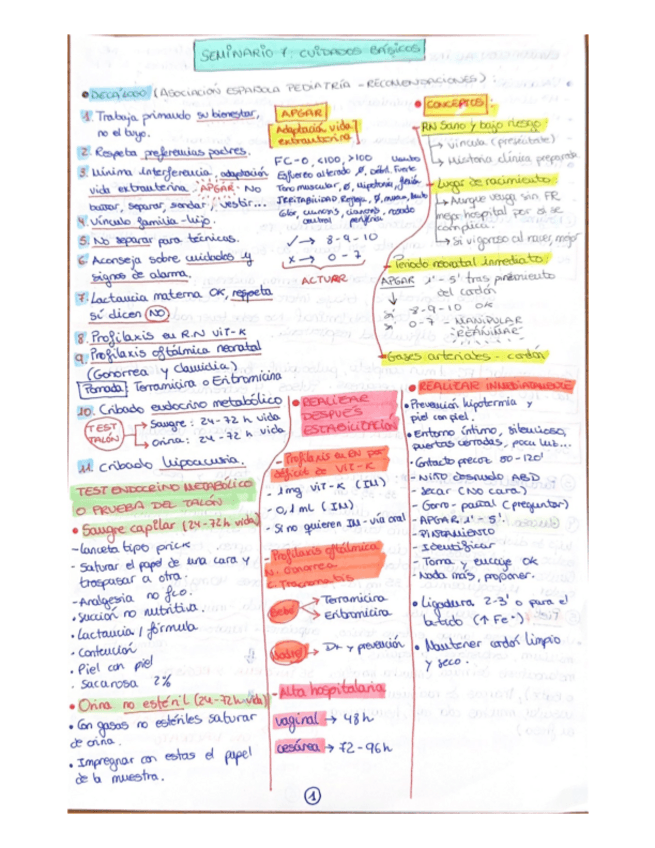 SEMINARIO 1: CUIDADOS BÁSICOS
• DECÁLOGO (ASOCIACIÓN ESPAÑOLA PEDIATRÍA - RECOMENDACIONES):
1. Trabaja primando su bienestar,
no el tuyo.
2. Respeta preferencias padres.
3. Mínima interferencia, adaptación
vida extrauterina. APGAR. NO
bañar, separar, sondar, vestir...
4. Vínculo familia-hijo.
5. No separar para técnicas.
6. Aconseja sobre cuidados y
signos de alarma.
7. Lactancia materna OK, respeta
si dicen NO
8. Profilaxis en R.N vit-K
9. Profilaxis oftálmica neonatal
(Gonorrea y clamidia)
Pomada Terramicina o Eritromicina
10. Cribado endocrino metabólico
TEST TALÓN
→ Sangre: 24-72 h vida
→ Orina: 24-72 h vida
11. Cribado hipoacusia.
TEST ENDOCRINO METABÓLICO
O PRUEBA DEL TALÓN
• Sangre capilar (24-72h vida)
- Lanceta tipo prick
- Saturar el papel de una cara y
traspasar a otra.
- Analgesia no fco.
• Succión no nutritiva.
• Lactancia / fórmula
- Contención
• Piel con piel
• Sacarosa 2%
• Orina no estéril (24-72h vida)
• Con gasas no estériles saturar
de orina.
• Impregnar con estas el papel
de la muestra.
APGAR
Adaptación vida
extrauterina
FC-0, <100, >100
Esfuerzo alterado Ø, débil, Fuerte
Tono muscular, Ø, hipotonía, flexión
IRRITABILIDAD Refleja, Ø, mueca, llanto
Color, cianosis, cianosis, rosado
central periférica
✓ → 8-9-10
x → 0-7
ACTUAR
• REALIZAR
DESPUÉS
ESTABILITACIÓN
- Profilaxis en RN por
déficit de vit-K
- 1 mg vit-K (IM)
- 0,1 mL (IM)
- Si no quieren IM - vía oral
- Profilaxis oftálmica
N. Gonorrea
C. Trachomatis
Bebé
→ Terramicina
→ Eritromicina
Madre → Dx y prevención
- Alta hospitalaria
vaginal → 48h
cesárea → 72-96h
• CONCEPTOS:
- RN Sano y bajo riesgo
→ Historia clínica preparada
- Lugar de nacimiento:
→ Aunque venga sin FR
mejor hospital por si se
complica
→ Si vigoroso al nacer, mejor
- Periodo neonatal inmediato:
APGAR 1'-5' tras pinzamiento
del cordón
↓
Si 8-9-10 OK
Si 0-7 - MANIPULAR
"REANIMAR"
- Gases arteriales - cordón
• REALIZAR INMEDIATAMENTE
• Prevención hipotermia y
piel con piel.
• Entorno íntimo, silencioso,
puertas cerradas, poca luz...
• Contacto precoz 60-120'
- NIÑO desnudo ABD
- Secar (NO cara)
- Gorro - pañal (preguntar)
- APGAR 1'-5'.
- PINZAMIENTO
- Identificar
- Toma y encaje OK
- Nada más, proponer.
• Ligadura 2-3' o para el
latido (↑ Fe+)
• Mantener cordón limpio
y seco.
1